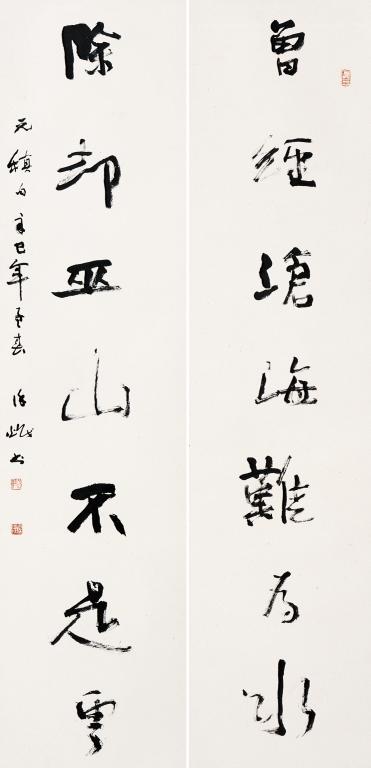 曾經滄海難為水
除却巫山不是雲
元稹句辛巳年春書